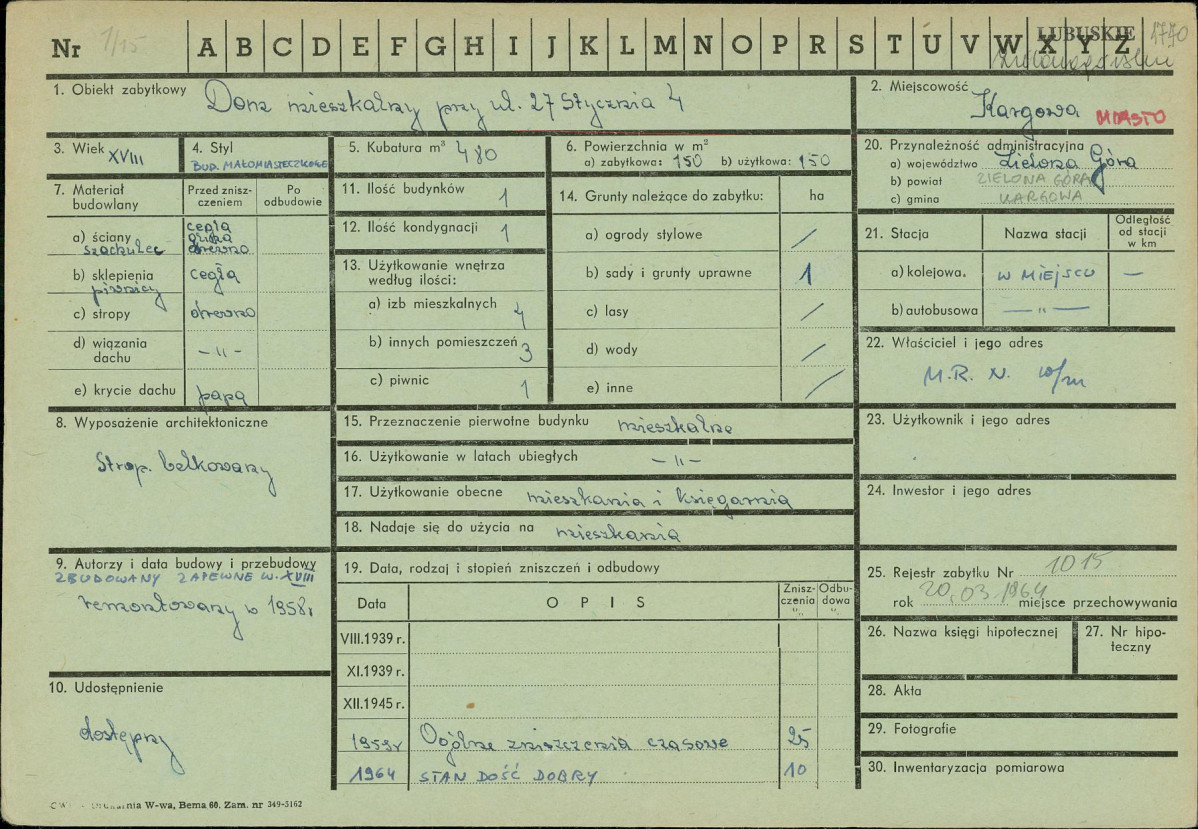 Nr 1/15 A B C D E F G H I J K L M N O P R S T U V W X Y Z LUBUSKIE 1770
1. Obiekt zabytkowy Dom mieszkalny przy ul. 27 Stycznia 4
2. Miejscowość Kargowa MIASTO
3. Wiek XVIII
4. Styl BUD. MAŁOMIASTECZKOWE
5. Kubatura m³ 480
6. Powierzchnia w m²
a) zabytkowa: 150 b) użytkowa: 150
7. Materiał budowlany
Przed zniszczeniem
Po odbudowie
a) ściany szachulec cegła glina drewno
b) sklepienia piwnicy cegła
c) stropy drewno
d) wiązania dachu — „ —
e) krycie dachu papą
8. Wyposażenie architektoniczne
Strop. belkowany
9. Autorzy i data budowy i przebudowy
ZBUDOWANY ZAPEWNE W. XVIII
remontowany w 1958r
10. Udostępnienie
dostępny
11. Ilość budynków 1
12. Ilość kondygnacji 1
13. Użytkowanie wnętrza
według ilości:
a) izb mieszkalnych 4
b) innych pomieszczeń 3
c) piwnic 1
14. Grunty należące do zabytku: ha
a) ogrody stylowe /
b) sady i grunty uprawne 1
c) lasy /
d) wody /
e) inne /
15. Przeznaczenie pierwotne budynku mieszkalne
16. Użytkowanie w latach ubiegłych — „ —
17. Użytkowanie obecne mieszkania i księgarnia
18. Nadaje się do użycia na mieszkania
19. Data, rodzaj i stopień zniszczeń i odbudowy
Data OPIS Zniszczenia % Odbudowa %
VIII.1939 r.
XI.1939 r.
XII.1945 r.
1959r Ogólne zniszczenia czasowe 25
1964 STAN DOŚĆ DOBRY 10
20. Przynależność administracyjna
a) województwo Zielona Góra
b) powiat ZIELONA GÓRA
c) gmina KARGOWA
21. Stacja Nazwa stacji Odległość od stacji w km
a) kolejowa. W MIEJSCU —
b) autobusowa — „ —
22. Właściciel i jego adres
M.R.N. w/m
23. Użytkownik i jego adres
24. Inwestor i jego adres
25. Rejestr zabytku Nr 1015
rok 20.03.1964 miejsce przechowywania
26. Nazwa księgi hipotecznej
27. Nr hipoteczny
28. Akta
29. Fotografie
30. Inwentaryzacja pomiarowa
W-wa, Bema 60. Zam. nr 349-5162